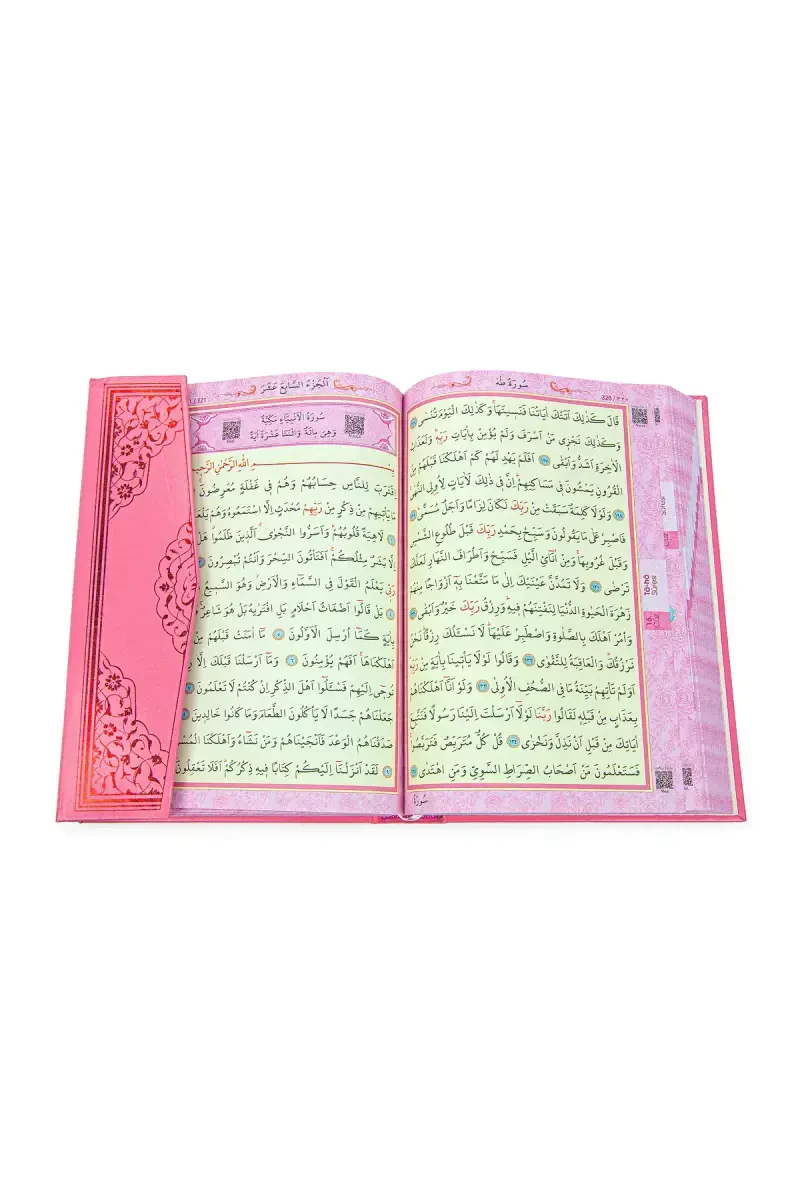 سُورَةُ طٰهٰ
320 / ٣٢٠
قَالَ كَذٰلِكَ اَتَتْكَ اٰيَاتُنَا فَنَسِيتَهَاۚ وَكَذٰلِكَ الْيَوْمَ تُنْسٰى
وَكَذٰلِكَ نَجْزٖى مَنْ اَسْرَفَ وَلَمْ يُؤْمِنْ بِاٰيَاتِ رَبِّهٖۜ وَلَعَذَابُ
الْاٰخِرَةِ اَشَدُّ وَاَبْقٰى ١٢٧ اَفَلَمْ يَهْدِ لَهُمْ كَمْ اَهْلَكْنَا قَبْلَهُمْ مِنَ
الْقُرُونِ يَمْشُونَ فٖى مَسَاكِنِهِمْۜ اِنَّ فٖى ذٰلِكَ لَاٰيَاتٍ لِاُولِى النُّهٰى
١٢٨ وَلَوْلَا كَلِمَةٌ سَبَقَتْ مِنْ رَبِّكَ لَكَانَ لِزَامًا وَاَجَلٌ مُسَمًّى
فَاصْبِرْ عَلٰى مَا يَقُولُونَ وَسَبِّحْ بِحَمْدِ رَبِّكَ قَبْلَ طُلُوعِ الشَّمْسِ
وَقَبْلَ غُرُوبِهَاۚ وَمِنْ اٰنَٓائِ الَّيْلِ فَسَبِّحْ وَاَطْرَافَ النَّهَارِ لَعَلَّكَ
تَرْضٰى ١٣٠ وَلَا تَمُدَّنَّ عَيْنَيْكَ اِلٰى مَا مَتَّعْنَا بِهٖٓ اَزْوَاجًا مِنْهُمْ
زَهْرَةَ الْحَيٰوةِ الدُّنْيَا لِنَفْتِنَهُمْ فٖيهِۜ وَرِزْقُ رَبِّكَ خَيْرٌ وَاَبْقٰى
وَأْمُرْ اَهْلَكَ بِالصَّلٰوةِ وَاصْطَبِرْ عَلَيْهَاۜ لَا نَسْـَٔلُكَ رِزْقًاۜ نَحْنُ
نَرْزُقُكَۜ وَالْعَاقِبَةُ لِلتَّقْوٰى ١٣٢ وَقَالُوا لَوْلَا يَأْتٖينَا بِاٰيَةٍ مِنْ رَبِّهٖۜ
اَوَلَمْ تَأْتِهِمْ بَيِّنَةُ مَا فِى الصُّحُفِ الْاُولٰى ١٣٣ وَلَوْ اَنَّٓا اَهْلَكْنَاهُمْ
بِعَذَابٍ مِنْ قَبْلِهٖ لَقَالُوا رَبَّنَا لَوْلَٓا اَرْسَلْتَ اِلَيْنَا رَسُولًا فَنَتَّبِعَ
اٰيَاتِكَ مِنْ قَبْلِ اَنْ نَذِلَّ وَنَخْزٰى ١٣٤ قُلْ كُلٌّ مُتَرَبِّصٌ فَتَرَبَّصُواۚ
فَسَتَعْلَمُونَ مَنْ اَصْحَابُ الصِّرَاطِ السَّوِىِّ وَمَنِ اهْتَدٰى
سُورَةُ
Tâ-hâ
Suresi
16.
اَلْجُزْءُ السَّابِعَ عَشَرَ
/ 321
سُورَةُ الْاَنْبِيَٓاءِ مَكِّيَّةٌ
وَهِىَ مِائَةٌ وَاثْنَتَا عَشْرَةَ اٰيَةً
بِسْمِ اللّٰهِ الرَّحْمٰنِ الرَّحٖيمِ
اِقْتَرَبَ لِلنَّاسِ حِسَابُهُمْ وَهُمْ فٖى غَفْلَةٍ مُعْرِضُونَۚ
مَا يَأْتٖيهِمْ مِنْ ذِكْرٍ مِنْ رَبِّهِمْ مُحْدَثٍ اِلَّا اسْتَمَعُوهُ وَهُمْ يَلْعَبُونَ
لَاهِيَةً قُلُوبُهُمْۜ وَاَسَرُّوا النَّجْوٰىۗ اَلَّذٖينَ ظَلَمُواۗ هَلْ
اِلَّا بَشَرٌ مِثْلُكُمْۚ اَفَتَأْتُونَ السِّحْرَ وَاَنْتُمْ تُبْصِرُونَ
رَبّٖى يَعْلَمُ الْقَوْلَ فِى السَّمَٓاءِ وَالْاَرْضِۘ وَهُوَ السَّمٖيعُ
بَلْ قَالُٓوا اَضْغَاثُ اَحْلَامٍ بَلِ افْتَرٰيهُ بَلْ هُوَ شَاعِرٌۚ
بِاٰيَةٍ كَمَٓا اُرْسِلَ الْاَوَّلُونَ ٥ مَٓا اٰمَنَتْ قَبْلَهُمْ مِنْ
اَهْلَكْنَاهَاۚ اَفَهُمْ يُؤْمِنُونَ ٦ وَمَٓا اَرْسَلْنَا قَبْلَكَ اِلَّا رِجَالًا
نُوحٖٓى اِلَيْهِمْ فَسْـَٔلُٓوا اَهْلَ الذِّكْرِ اِنْ كُنْتُمْ لَا تَعْلَمُونَ
جَعَلْنَاهُمْ جَسَدًا لَا يَأْكُلُونَ الطَّعَامَ وَمَا كَانُوا خَالِدٖينَ
صَدَقْنَاهُمُ الْوَعْدَ فَاَنْجَيْنَاهُمْ وَمَنْ نَشَٓاءُ وَاَهْلَكْنَا الْمُسْرِفٖينَ
لَقَدْ اَنْزَلْنَٓا اِلَيْكُمْ كِتَابًا فٖيهِ ذِكْرُكُمْۜ اَفَلَا تَعْقِلُونَ